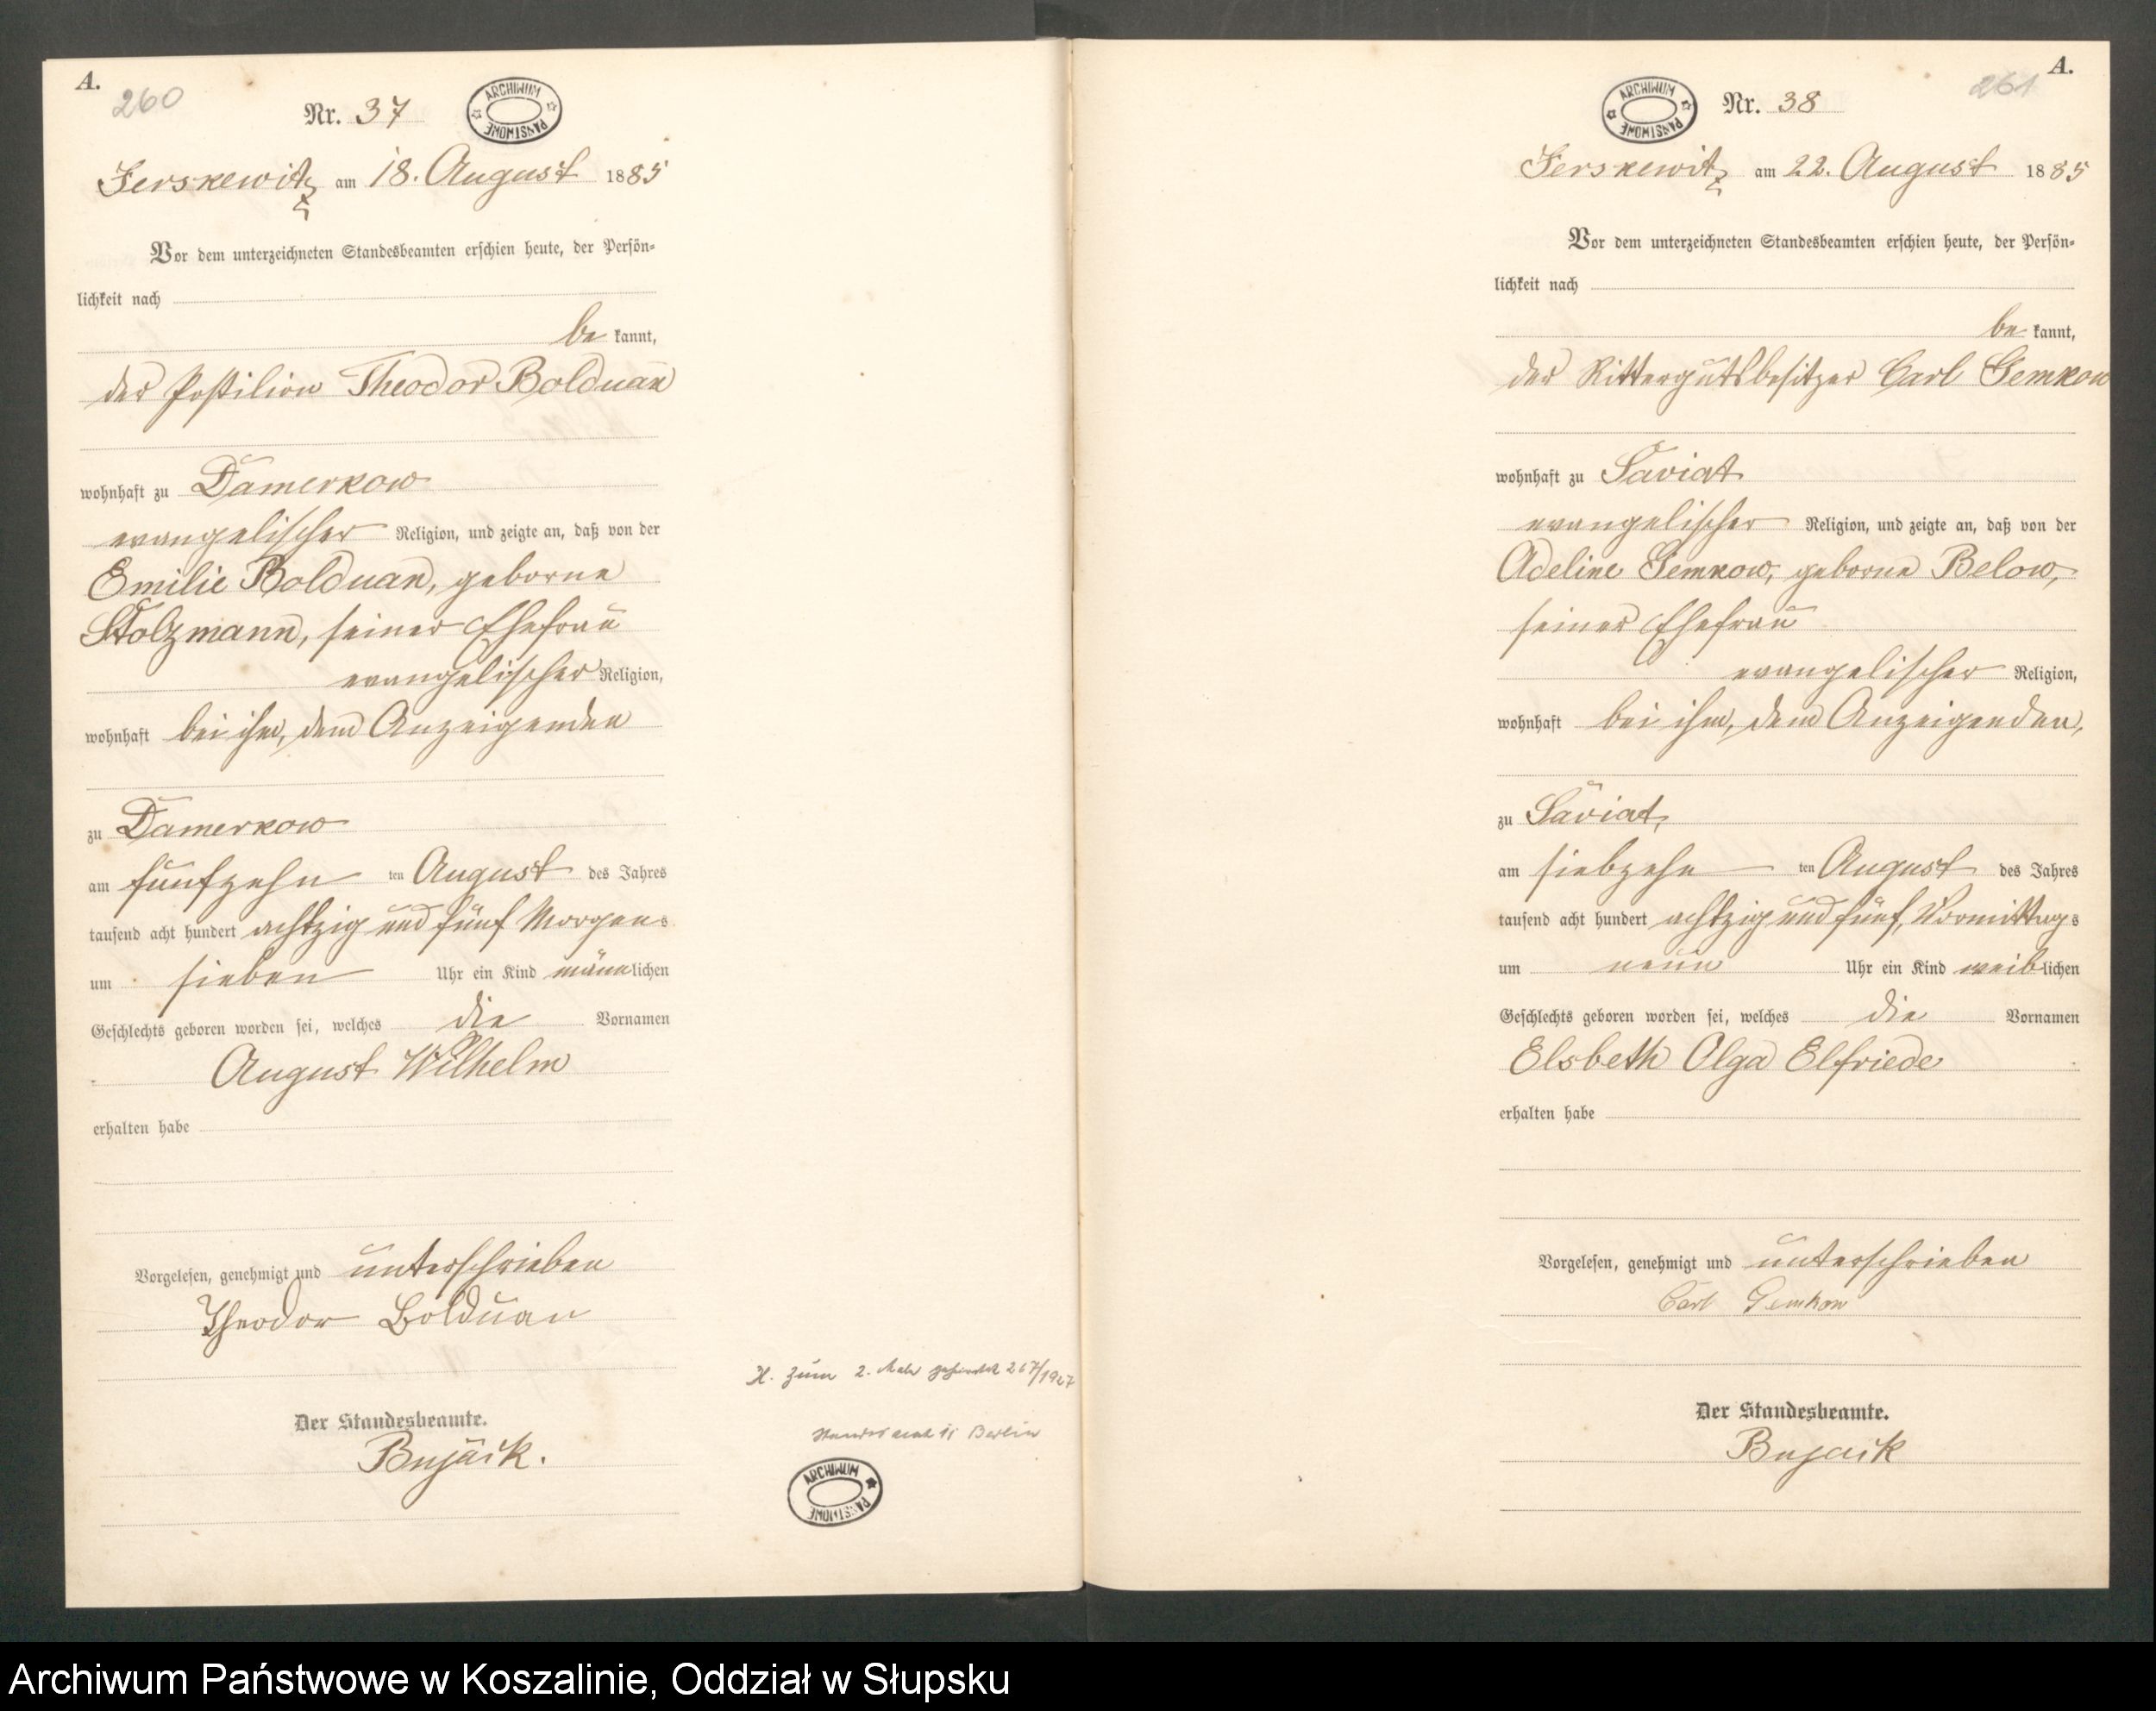 A.
260
Nr. 37
ARCHIWUM PAŃSTWOWE
Jerskewitz am 18. August 1885
Vor dem unterzeichneten Standesbeamten erschien heute, der Persön-
lichkeit nach
be kannt,
der Postilion Theodor Bolduan
wohnhaft zu Damerkow
evangelischer Religion, und zeigte an, daß von der
Emilie Bolduan, geborne
Stolzmann, seiner Ehefrau
evangelischer Religion,
wohnhaft bei ihm, dem Anzeigenden
zu Damerkow
am fünfzehn ten August des Jahres
tausend acht hundert achtzig und fünf Morgens
um sieben Uhr ein Kind männlichen
Geschlechts geboren worden sei, welches die Vornamen
August Wilhelm
erhalten habe
Vorgelesen, genehmigt und unterschrieben
Theodor Bolduan
Der Standesbeamte.
Bujäik.
H. zum 2. Male 267/1927
Berlin
ARCHIWUM PAŃSTWOWE
A.
261
ARCHIWUM PAŃSTWOWE
Nr. 38
Jerskewitz am 22. August 1885
Vor dem unterzeichneten Standesbeamten erschien heute, der Persön-
lichkeit nach
be kannt,
der Rittergutsbesitzer Carl Gemkow
wohnhaft zu Saviat
evangelischer Religion, und zeigte an, daß von der
Adeline Gemkow, geborne Below,
seiner Ehefrau
evangelischer Religion,
wohnhaft bei ihm, dem Anzeigenden,
zu Saviat,
am siebzehn ten August des Jahres
tausend acht hundert achtzig und fünf, Vormittags
um neun Uhr ein Kind weiblichen
Geschlechts geboren worden sei, welches die Vornamen
Elsbeth Olga Elfriede
erhalten habe
Vorgelesen, genehmigt und unterschrieben
Carl Gemkow
Der Standesbeamte.
Bujaik
Archiwum Państwowe w Koszalinie, Oddział w Słupsku